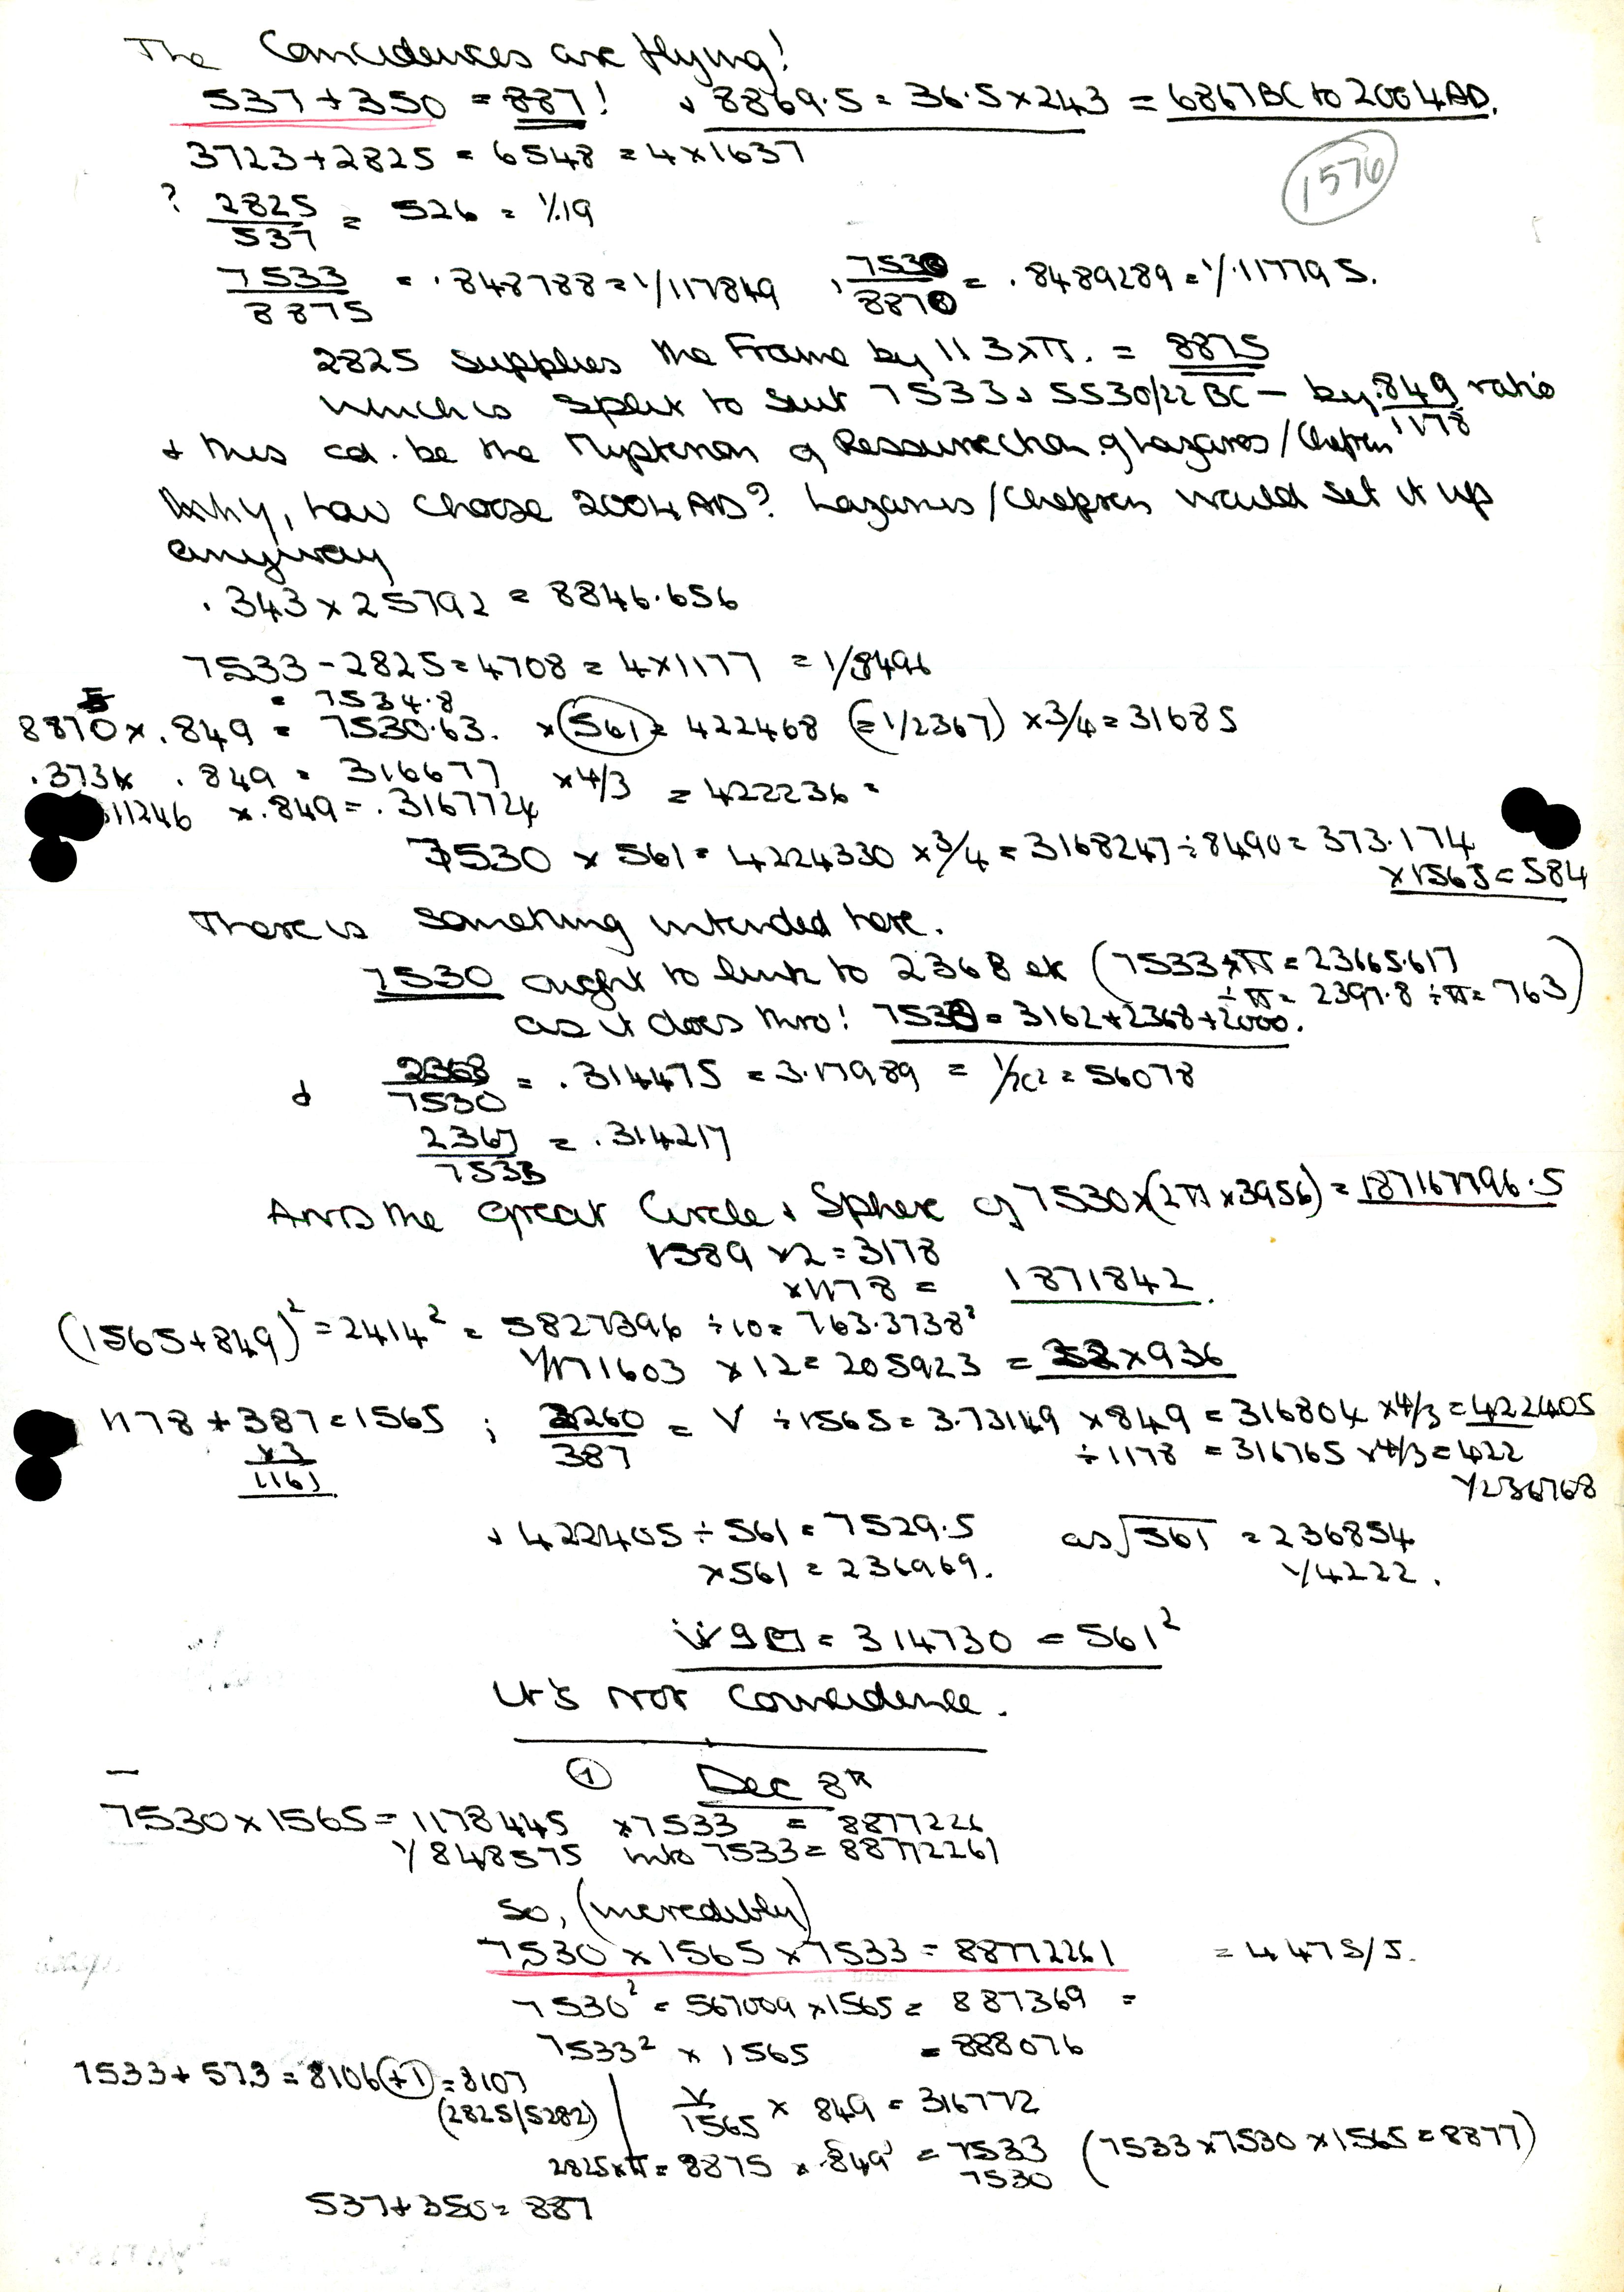 The Coincidences are flying!
537 + 350 = 887! & 8869.5 = 36.5 x 243 = 6867 BC to 2004 AD.
1576
3723 + 2825 = 6548 = 4 x 1637
? 2825/537 = 526 = 1/.19
7533/8875 = .848788 = 1/117849 , 7530/8870 = .8489289 = 1/.1177795.
2825 supplies the Frame by 113 x π. = 8875
which is split to suit 7533 & 5530/22 BC - by .849/1178 ratio
& this cd. be the of Ressurrection of Lazarus/Chephren
Why, how choose 2004 AD? Lazarus/Chephren would set it up
anyway
.343 x 25792 = 8846.656
7533 - 2825 = 4708 = 4 x 1177 = 1/8496
= 7534.8
8870 x .849 = 7530.63. x 561 = 422468 (= 1/2367) x 3/4 = 31685
.373 x .849 = 316677 x 4/3 = 422236 =
11246 x .849 = .3167724
7530 x 561 = 4224330 x 3/4 = 3168247 ÷ 8490 = 373.174
x 1565 = 584
There is something intended here.
7530 ought to link to 2368 etc (7533 x π = 23665.617
÷ π = 2397.8 ÷ π = 763)
as it does thro! 7530 = 3162 + 2368 + 2000.
& 2368/7530 = .314475 = 3.17989 = 1/x2 = 56078
2367/7533 = .314217
And the great Circle & Sphere of 7530 x (2π x 3956) = 187167796.5
1589 x 2 = 3178
x 1178 = 1871842.
(1565 + 849)² = 2414² = 5827396 ÷ 10 = 763.3738²
1/171603 x 12 = 205923 = 22 x 936
1178 + 387 = 1565 ; 2260/387 = √ ÷ 1565 = 3.73149 x 849 = 316804 x 4/3 = 422405
x 3
1161
÷ 1178 = 316765 x 4/3 = 422
1/236768
& 422405 ÷ 561 = 7529.5 as √561 = 236854
x 561 = 236969. 1/4222.
= 314730 = 561²
It's not Coincidence.
① Dec 8th
7530 x 1565 = 1178445 x 7533 = 8877226
1/848575 into 7533 = 88772261
So, (incredibly)
7530 x 1565 x 7533 = 88772261 = 4475/5.
7530² = 567009 x 1565 = 887369 =
7533² x 1565 = 888076
7533 + 573 = 8106 +1 = 8107
(2825/5282)
√/1565 x 849 = 316772
2825 x π = 8875 x .849 = 7533 (7533 x 7530 x 1565 = 8877)
7530
537 + 350 = 887